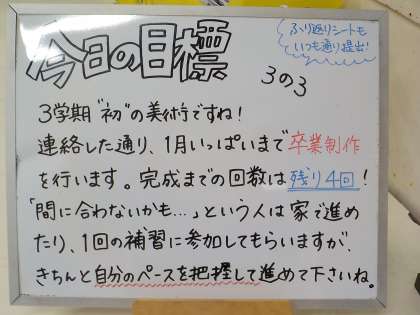 今日の目標
ふり返りシートも
いつも通り提出!
3の3
3学期"初"の美術ですね!
連絡した通り、1月いっぱいまで卒業制作
を行います。完成までの回数は残り4回!
「間に合わないかも…」という人は家で進め
たり、1回の補習に参加してもらいますが、
きちんと自分のペースを把握して進めて下さいね。